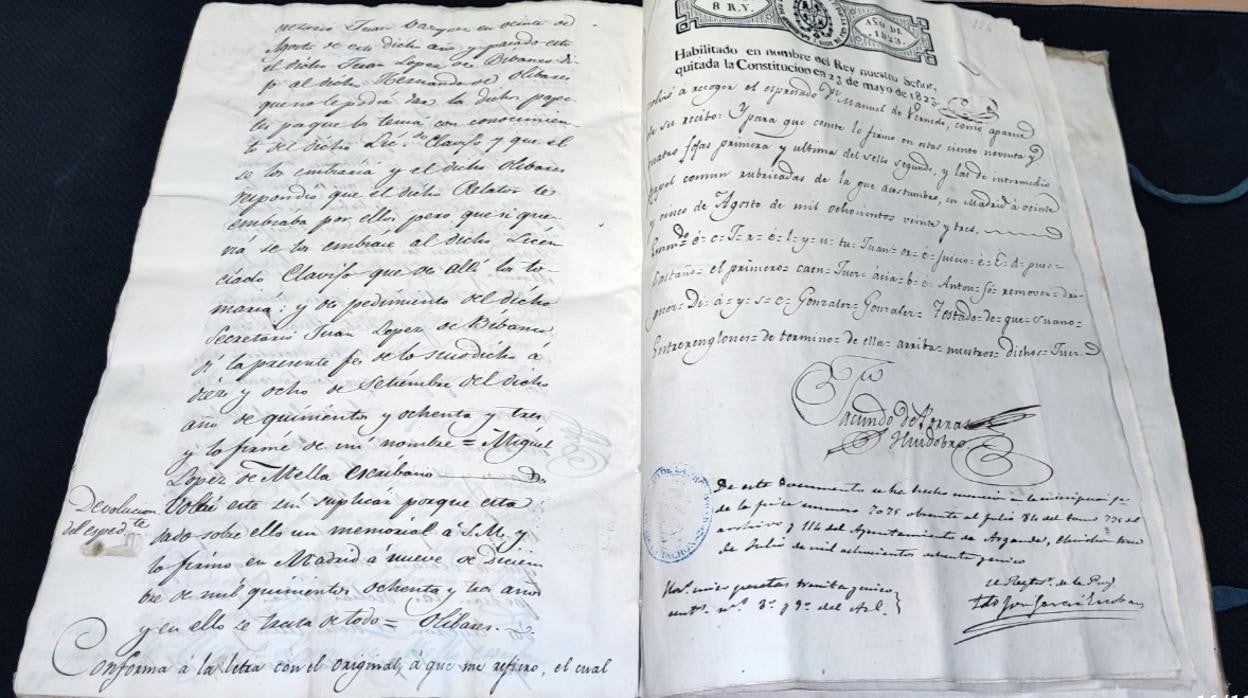 cretario Juan Vazquez en veinte de
Agosto de este dicho año, y pasado esto
el dicho Juan Lopez de Bibanco di
jo al dicho Hernando de Olibares
que no le podia dar los dichos pape
les porque los tenia con conocimien
to del dicho Lic.do Clavijo y que el
se los embiaria y el dicho Olibares
respondió que el dicho Relator le
embiaba por ellos pero que si que
ria se los embiase al dicho Licen
ciado Clavijo que de alli los to
maria; y de pedimento del dicho
Secretario Juan Lopez de Bibanco
di la presente fe de lo susodicho á
diez y ocho de Setiembre del dicho
año de quinientos y ochenta y tres
y lo firme de mi nombre = Miguel
Lopez de Mella escribano
Devolucion
del esped.te
Volbi este sin suplicar porque esta
dado sobre ello un memorial á S.M. y
lo firmo en Madrid á nueve de Diciem
bre de mil quinientos ochenta y tres años
y en ello se trata de todo = Olibares.
Conforma á la letra con el original, á que me refiero, el cual
8 R.V.
AÑO DE
1823.
194
Habilitado en nombre del Rey nuestro Señor,
quitada la Constitucion en 23 de mayo de 1823.
volvió á recoger el espresado Dn Manuel de, como aparece
de su recibo: Y para que conste lo firmo en estas ciento noventa y
cuatro fojas primera y ultima del sello segundo, y las de intermedio
papel comun rubricadas de la que acostumbro, en Madrid á veinte
y cinco de Agosto de mil ochocientos veinte y tres.
Enmdo = é = c = T = r = é = l = y = n = tu = Juan = or = é = juicio = é = E = d = pue =
Castaño = el primero = caen = Juer = ácia = b = c = Anton = só = remover = de =
guor = Di = á = y = s = e = Gonzalez = Gonzalez = Testado = de = que = suano =
Entrerenglones = de termino = de ella = arriba = nuestros = dichos = Juer.
Facundo de Porras
Huidobro
De este Documento se ha hecho mencion en la inscripcion 1a
de la finca numero 7075 obrante al folio 84 del tomo 736 del
archivo y 114 del Ayuntamiento de Arganda, Chinchon trece
de Julio de mil ochocientos ochenta y cinco
El Regtor de la Prop.
Hon.s cinco pesetas treinta y cinco
cent.s n.os 3o y 9o del Arl.
Ldo Jose Garcia